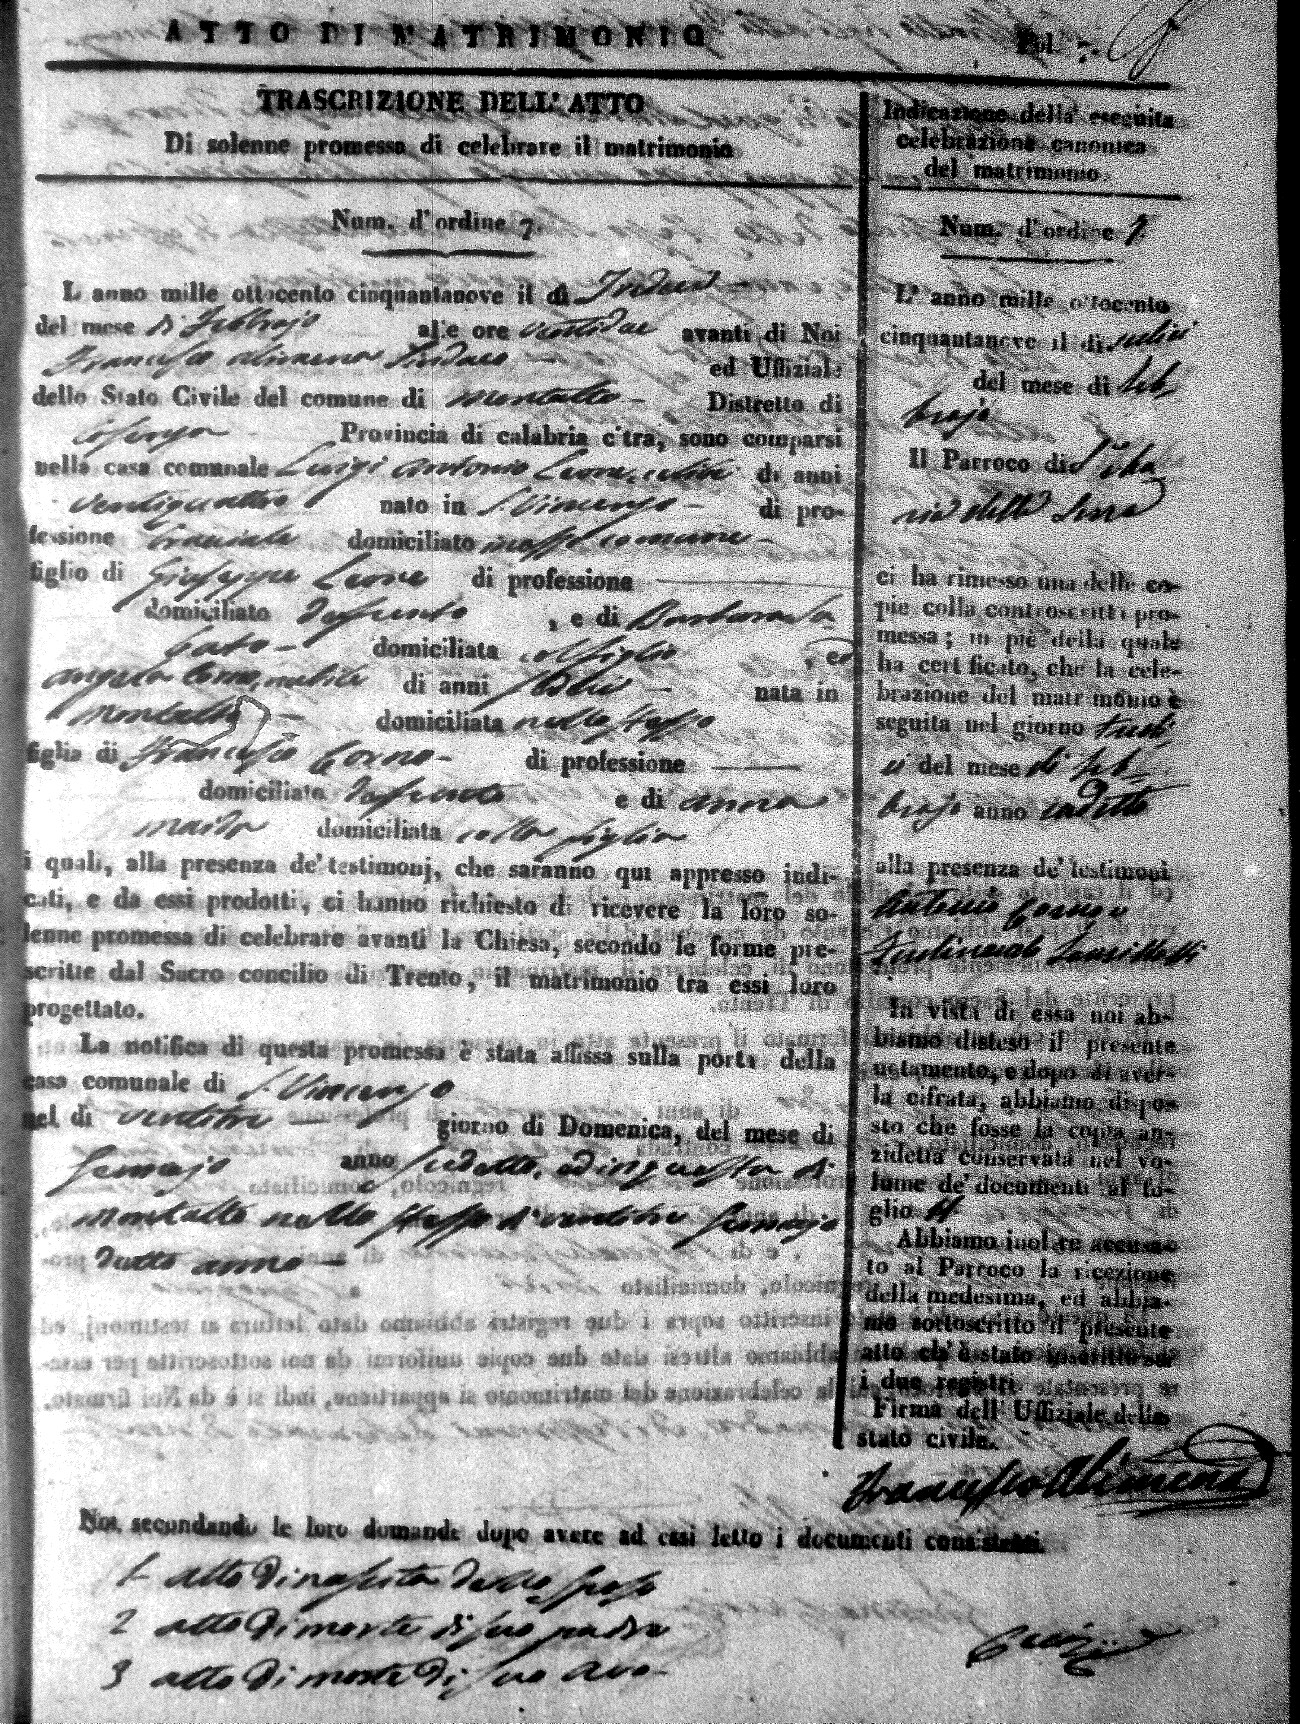 ATTO DI MATRIMONIO
Fol. 7.
TRASCRIZIONE DELL' ATTO
Di solenne promessa di celebrare il matrimonio
Num. d'ordine 7.
L anno mille ottocento cinquantanove il di
del mese di Febbrajo alle ore ventidue avanti di Noi
Francesco Alimena Sindaco ed Uffiziale
dello Stato Civile del comune di Montalto Distretto di
Cosenza Provincia di calabria citra, sono comparsi
nella casa comunale Luigi Antonio Leone di anni
ventiquattro nato in S. Vincenzo di pro-
fessione bracciale domiciliato
figlio di Giuseppe Leone di professione
domiciliato defunto , e di Barbara
domiciliata col figlio , ed
Angela Corno, nubile di anni nata in
Montalto domiciliata nello stesso
figlia di Francesco Corno di professione
domiciliato defunto e di Anna
domiciliata colla figlia
i quali, alla presenza de' testimonj, che saranno qui appresso indi-
cati, e da essi prodotti, ci hanno richiesto di ricevere la loro so-
lenne promessa di celebrare avanti la Chiesa, secondo le forme pre-
scritte dal Sacro concilio di Trento, il matrimonio tra essi loro
progettato.
La notifica di questa promessa è stata affissa sulla porta della
casa comunale di S. Vincenzo
nel di ventitre giorno di Domenica, del mese di
Gennajo anno sudetto, ed in questa di
Montalto nello stesso dì ventitre Gennajo
detto anno
Indicazione della eseguita
celebrazione canonica
del matrimonio
Num. d'ordine 7
L' anno mille ottocento
cinquantanove il di
del mese di Feb
brajo
Il Parroco di
della Serra
ci ha rimesso una delle co-
pie colla controscritta pro-
messa; in piè della quale
ha certificato, che la cele-
brazione del matrimonio è
seguita nel giorno
del mese di Feb
brajo anno sudetto
alla presenza de' testimoni
Antonio
Ferdinando
In vista di essa noi ab-
biamo disteso il presente
notamento, e dopo di aver-
la cifrata, abbiamo dispo-
sto che fosse la copia an-
zidetta conservata nel vo-
lume de' documenti al fo-
glio
Abbiamo inoltre accusa-
to al Parroco la ricezione
della medesima, ed abbia-
mo sottoscritto il presente
atto ch'è stato inscritto su'
i due registri.
Firma dell' Uffiziale dello
stato civile.
Francesco Alimena
Noi secondando le loro domande dopo avere ad essi letto i documenti consistenti.
1 atto di nascita dello sposo
2 atto di morte di suo padre
3 atto di morte di suo avo